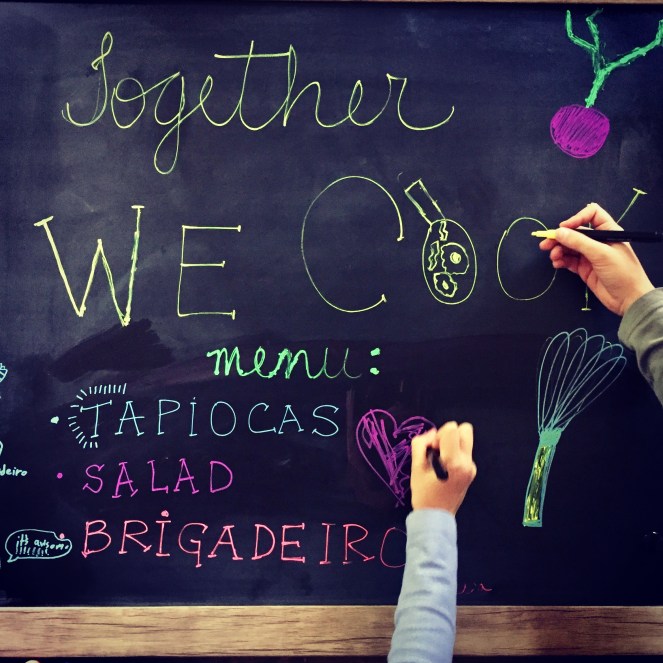 Together
WE COOK
menu:
• TAPIOCAS
• SALAD
• BRIGADEIRO
deiro
it's awesome